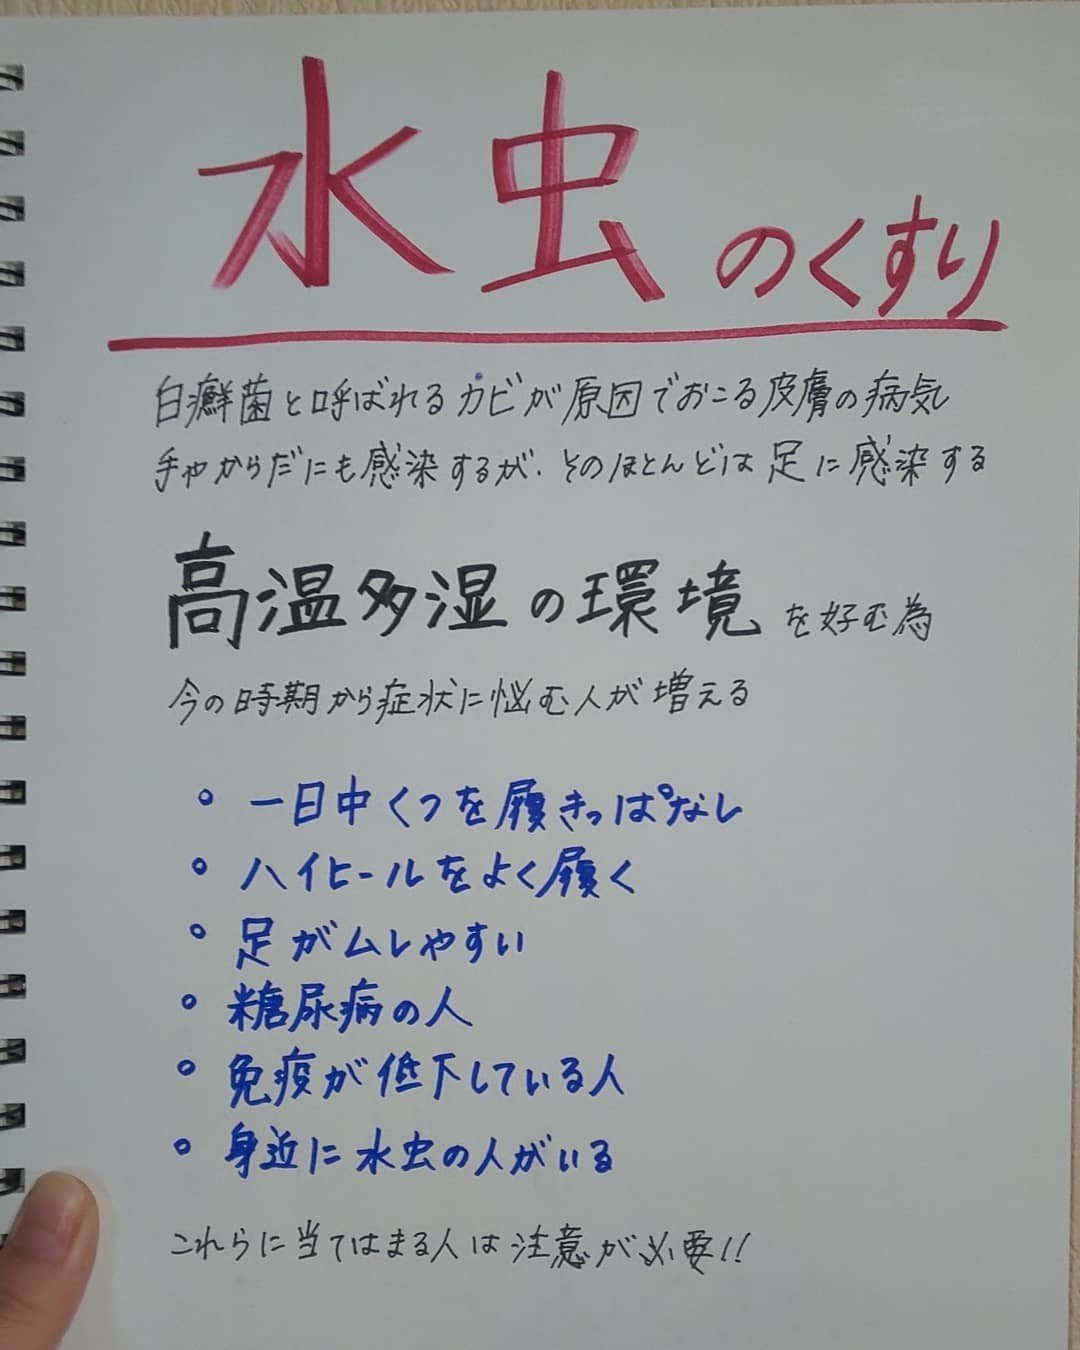 水虫のくすり
白癬菌と呼ばれるカビが原因でおこる皮膚の病気
手やからだにも感染するが、そのほとんどは足に感染する
高温多湿の環境を好む為
今の時期から症状に悩む人が増える
◦ 一日中くつを履きっぱなし
◦ ハイヒールをよく履く
◦ 足がムレやすい
◦ 糖尿病の人
◦ 免疫が低下している人
◦ 身近に水虫の人がいる
これらに当てはまる人は注意が必要!!